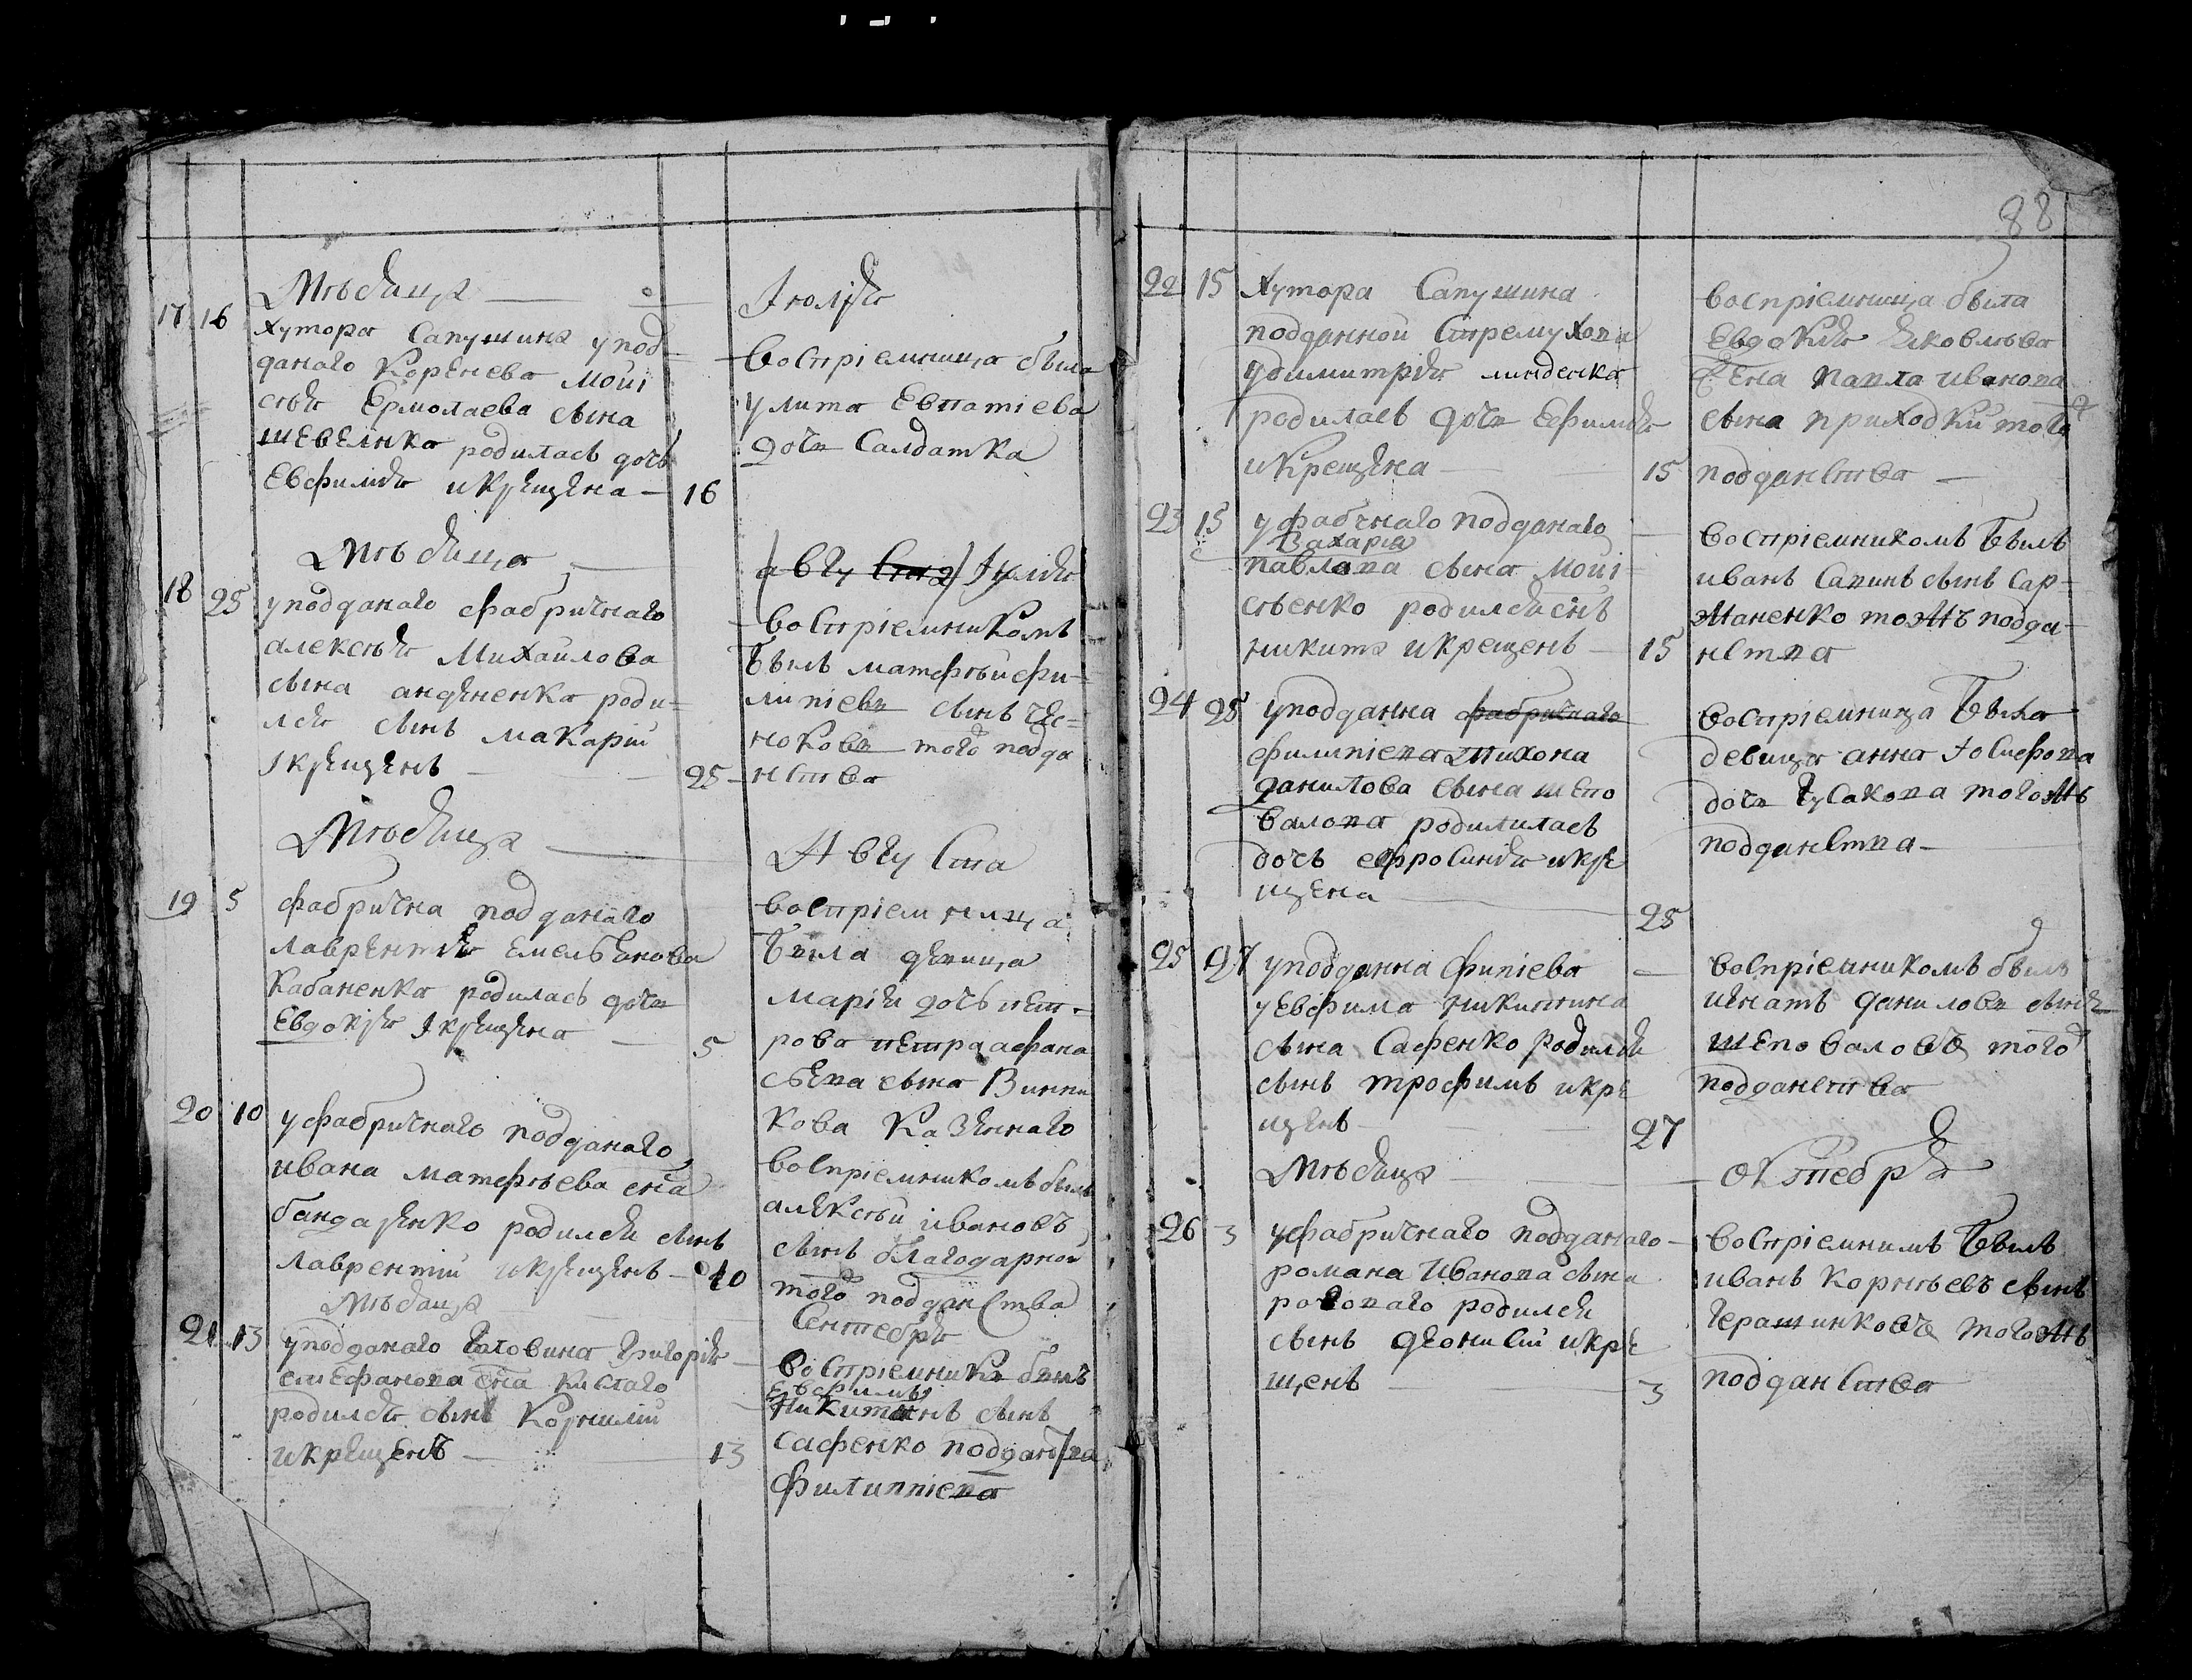 Мѣсяца
Июлія
17 16 Хутора Сапушина у под-
данаго Коренева Мои
сѣя Ермолаева сына
шевеленка родилась дочь
Евфимія и крещена 16
воспріемница была
улита Евпатіева
дочь Салдатка
Мѣсяца
августа Іулія
18 25 у подданаго фабричнаго
алексѣя Михайлова
сына роди-
лся сынъ Макарій
і крещенъ 25
воспріемникомъ
былъ матфѣй фи-
липіевъ сынъ чес-
ноковъ того подда
нства
Мѣсяца
Августа
19 5 фабрична подданаго
лаврентія емельянова
Кабаненка родилась дочь
Евдокія і крещена 5
воспріемница
была девица
марія дочь пет-
рова петра афана
сьева сына Винни
кова Казеннаго
20 10 у фабричнаго подданаго
ивана матфѣева сна
бандаренко родился сынъ
лаврентій и крещенъ 10
воспріемникомъ былъ
алексѣй івановъ
сынъ благодарной
того подданства
Мѣсяца
Сентебря
21 13 у подданаго Головина Григорія
сна кислаго
родился сынъ Корнилій
и крещенъ 13
воспріемникъ былъ
Евфимъ
Никитинъ сынъ
сафенко подданства
Филиппіева
88
22 15 Хутора Сапушина
подданной Стремухова
у димитрія линденка
родилась дочь Ефимія
и крещена 15
воспріемница была
Евдокія Яковлева
жена павла иванова
сына приходки того
подданства
23 15 у фабрчнаго подданаго
Захарія
павлова сына Мои
сѣенко родился снъ
никита и крещенъ 15
воспріемникомъ былъ
иванъ Савинъ сынъ сар-
жаненко тожъ подда-
нства
24 25 у подданна фабричнаго
филипіева тихона
данилова сына шепо
валова родилилась
дочь ефросинія и кре
щена 25
воспріемница была
девица анна Іосифова
дочь гусакова тогожъ
подданства
25 27 у подданна фипіева
у Евфима никитина
сына Сафенко родился
сынъ трофимъ и кре
щенъ 27
воспріемникомъ былъ
игнатъ даниловъ сынъ
шеповаловъ того
подданства
Мѣсяца
октебря
26 3 у фабричнаго подданаго
романа Иванова сына
родился
сынъ деонисій и кре
щенъ 3
воспріемнимъ былъ
иванъ корнѣевъ сынъ
геращинковъ тогожъ
подданства